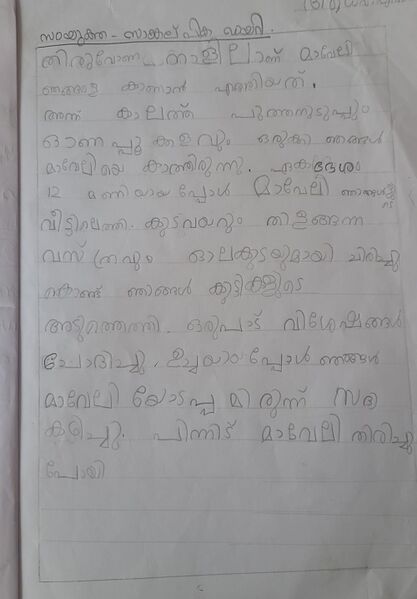 സംയുക്ത - സാങ്കല്പിക ഡയറി.
തിരുവോണ നാളിലാണ് മാവേലി
ഞങ്ങളെ കാണാൻ എത്തിയത്.
അന്ന് കാലത്ത് പുത്തനുടുപ്പും
ഓണപ്പൂക്കളവും ഒരുക്കി ഞങ്ങൾ
മാവേലിയെ കാത്തിരുന്നു. ഏകദേശം
12 മണിയായപ്പോൾ മാവേലി ഞങ്ങളുടെ
വീട്ടിലെത്തി. കുടവയറും തിളങ്ങുന്ന
വസ്ത്രവും ഓലകുടയുമായി ചിരിച്ചു
കൊണ്ട് ഞങ്ങൾ കുട്ടികളുടെ
അടുത്തെത്തി. ഒരുപാട് വിശേഷങ്ങൾ
ചോദിച്ചു. ഉച്ചയായപ്പോൾ ഞങ്ങൾ
മാവേലിയോടപ്പമിരുന്ന് സദ്യ
കഴിച്ചു. പിന്നിട് മാവേലി തിരിച്ചു
പോയി